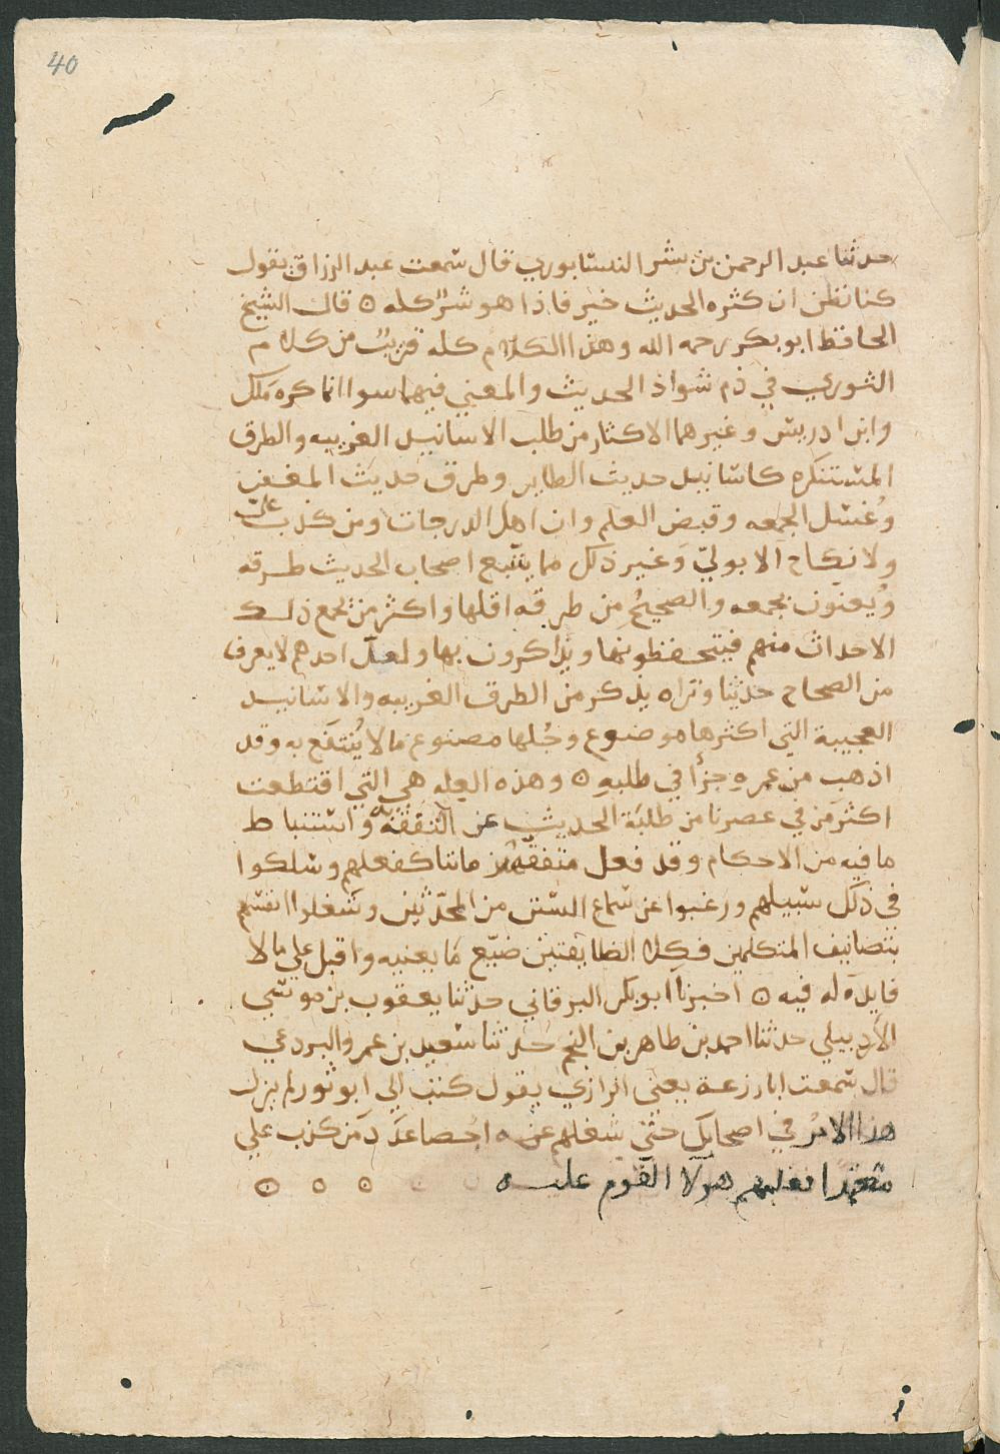 40
حدثنا عبد الرحمن بن بشر النيسابوري قال سمعت عبد الرزاق يقول
كنا نظن ان كثره الحديث خير فاذا هو شر كله ه قال الشيخ
الحافظ ابو بكر رحمه الله وهذا الكلام كله قريب من كلام
الثوري في ذم شواذ الحديث والمعني فيهما سوا انما كره ملك
وابن ادريس وغيرهما الاكثار من طلب الاسانيد الغريبه والطرق
المستنكره كاسانيد حديث الطاير وطرق حديث المغفر
وغسل الجمعه وقبض العلم وان اهل الدرجات ومن كذب علي
ولا نكاح الا بولي وغير ذلك مما يتبع اصحاب الحديث طرقه
ويعنون بجمعه والصحيح من طرقه اقلها واكثر من يجمع ذلك
الاحداث منهم فيتحفظونها ويذاكرون بها ولعل احدهم لا يعرف
من الصحاح حديثا وتراه يذكر من الطرق الغريبه والاسانيد
العجيبة التي اكثرها موضوع وجلها مصنوع مالا ينتفع به وقد
اذهب من عمره جزأ في طلبه ه وهذه العله هي التي اقتطعت
اكثر من في عصرنا من طلبة الحديث عن التفقه به واستنباط
ما فيه من الاحكام وقد فعل متفقهة زماننا كفعلهم وسلكوا
في ذلك سبيلهم ورغبوا عن سماع السنن من المحدثين وشغلوا انفسهم
بتصانيف المتكلمين فكلا الطايفتين ضيع ما يعنيه واقبل علي مالا
فايدة له فيه ه اخبرنا ابو بكر البرقاني حدثنا يعقوب بن موسي
الاردبيلي حدثنا احمد بن طاهر بن النجم حدثنا سعيد بن عمرو البردعي
قال سمعت ابا زرعة يعني الرازي يقول كتب الي ابو ثور لم يزل
هذا الامر في اصحابك حتى شغلهم عنه احصا عدد من كذب علي
متعمدا فغلبهم هولا القوم عليه